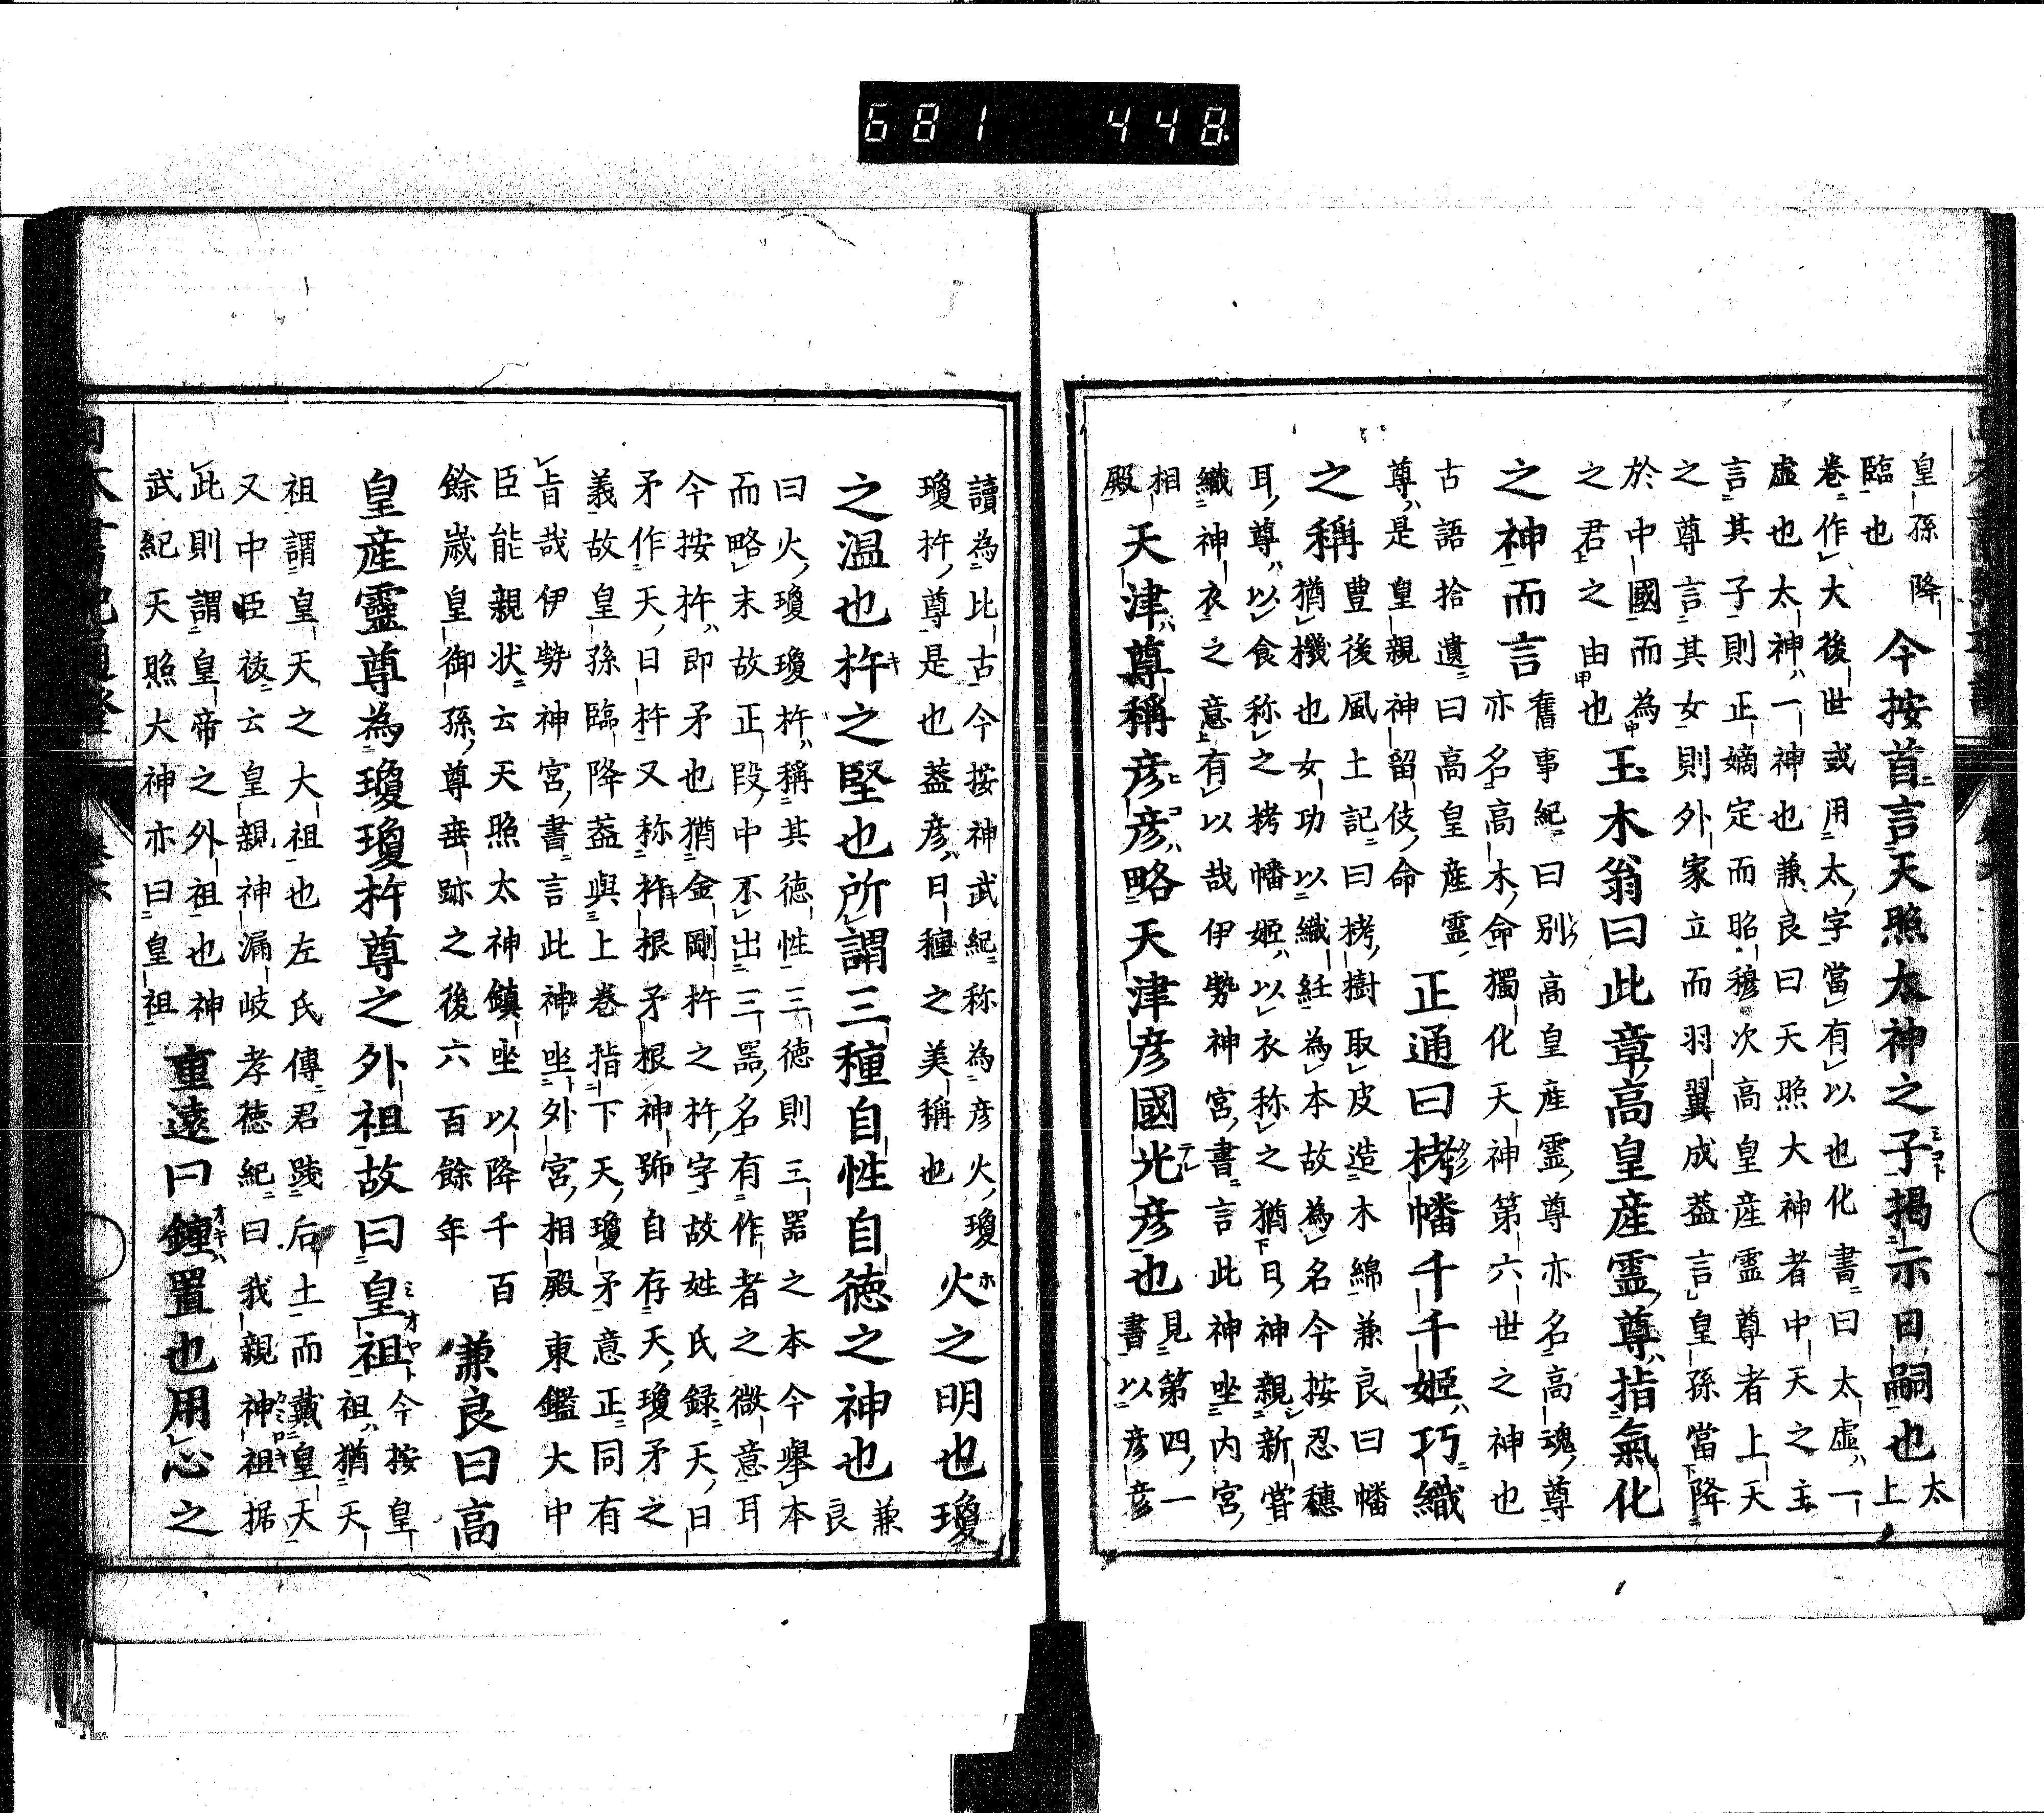 皇孫降
臨也
今按首言天照太神之子揭示日嗣也
太
上
卷作大後世或用太字當有以也化書曰太虛一
虛也太神一神也兼良曰天照大神者中天之主
言其子則正嫡定而昭穆次高皇産霊尊者上天
之尊言其女則外家立而羽翼成蓋言皇孫當降
於中國而為
之君之由也
玉木翁曰此章高皇産霊尊指氣化
之神而言
舊事紀曰別高皇産霊尊亦名高魂尊
亦名高木命獨化天神第六世之神也
古語拾遺曰高皇産靈
尊是皇親神留伎命
正通曰栲幡千千姫巧織
之稱
豊後風土記曰栲樹取皮造木綿兼良曰幡
猶機也女功以織紝為本故為名今按忍穗
耳尊以食称之栲幡姫以衣称之猶日神親新嘗
織神衣之意有以哉伊勢神宮書言此神坐内宮
相
殿
天津尊稱彦彦略天津彦國光彦也
見第四一
書以彦彦
讀為比古今按神武紀称為彦火瓊
瓊杵尊是也蓋彦日種之美稱也
火之明也瓊
之温也杵之堅也所謂三種自性自徳之神也
兼
良
曰火瓊瓊杵稱其徳性三徳則三器之本今舉本
而略末故正段中不出三器名有作者之微意耳
今按杵即矛也猶金剛杵之杵字故姓氏録天日
矛作天日杵又称杵根矛根神號自存天瓊矛之
義故皇孫臨降蓋與上卷指下天瓊矛意正同有
旨哉伊勢神宮書言此神坐外宮相殿東鑑大中
臣能親状云天照太神鎮坐以降千百
餘歳皇御孫尊垂跡之後六百餘年
兼良曰高
皇産靈尊為瓊瓊杵尊之外祖故曰皇祖
今按皇
祖猶天
祖謂皇天之大祖也左氏傳君踐后土而戴皇天
又中臣祓云皇親神漏岐孝徳紀曰我親神祖据
此則謂皇帝之外祖也神
武紀天照大神亦曰皇祖
重遠曰鐘置也用心之
681 448